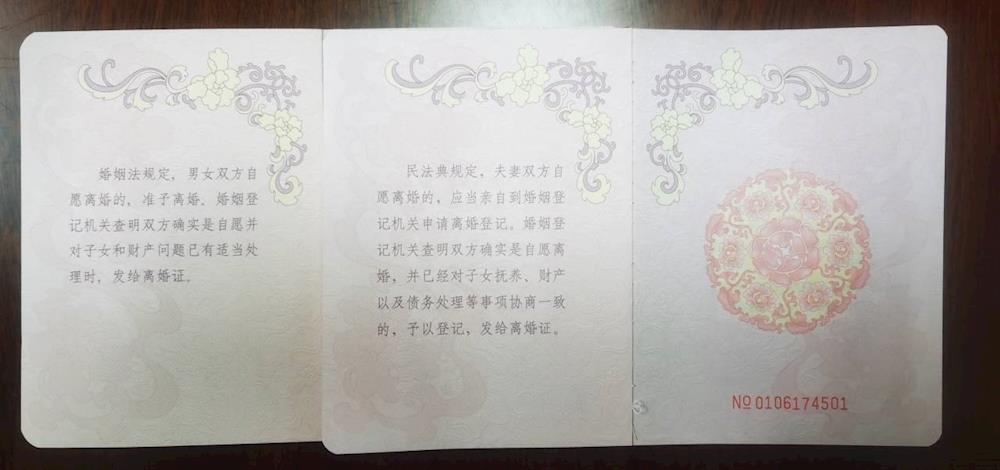 婚姻法规定，男女双方自
愿离婚的，准予离婚。婚姻登
记机关查明双方确实是自愿并
对子女和财产问题已有适当处
理时，发给离婚证。
民法典规定，夫妻双方自
愿离婚的，应当亲自到婚姻登
记机关申请离婚登记。婚姻登
记机关查明双方确实是自愿离
婚，并已经对子女抚养、财产
以及债务处理等事项协商一致
的，予以登记，发给离婚证。
№0106174501